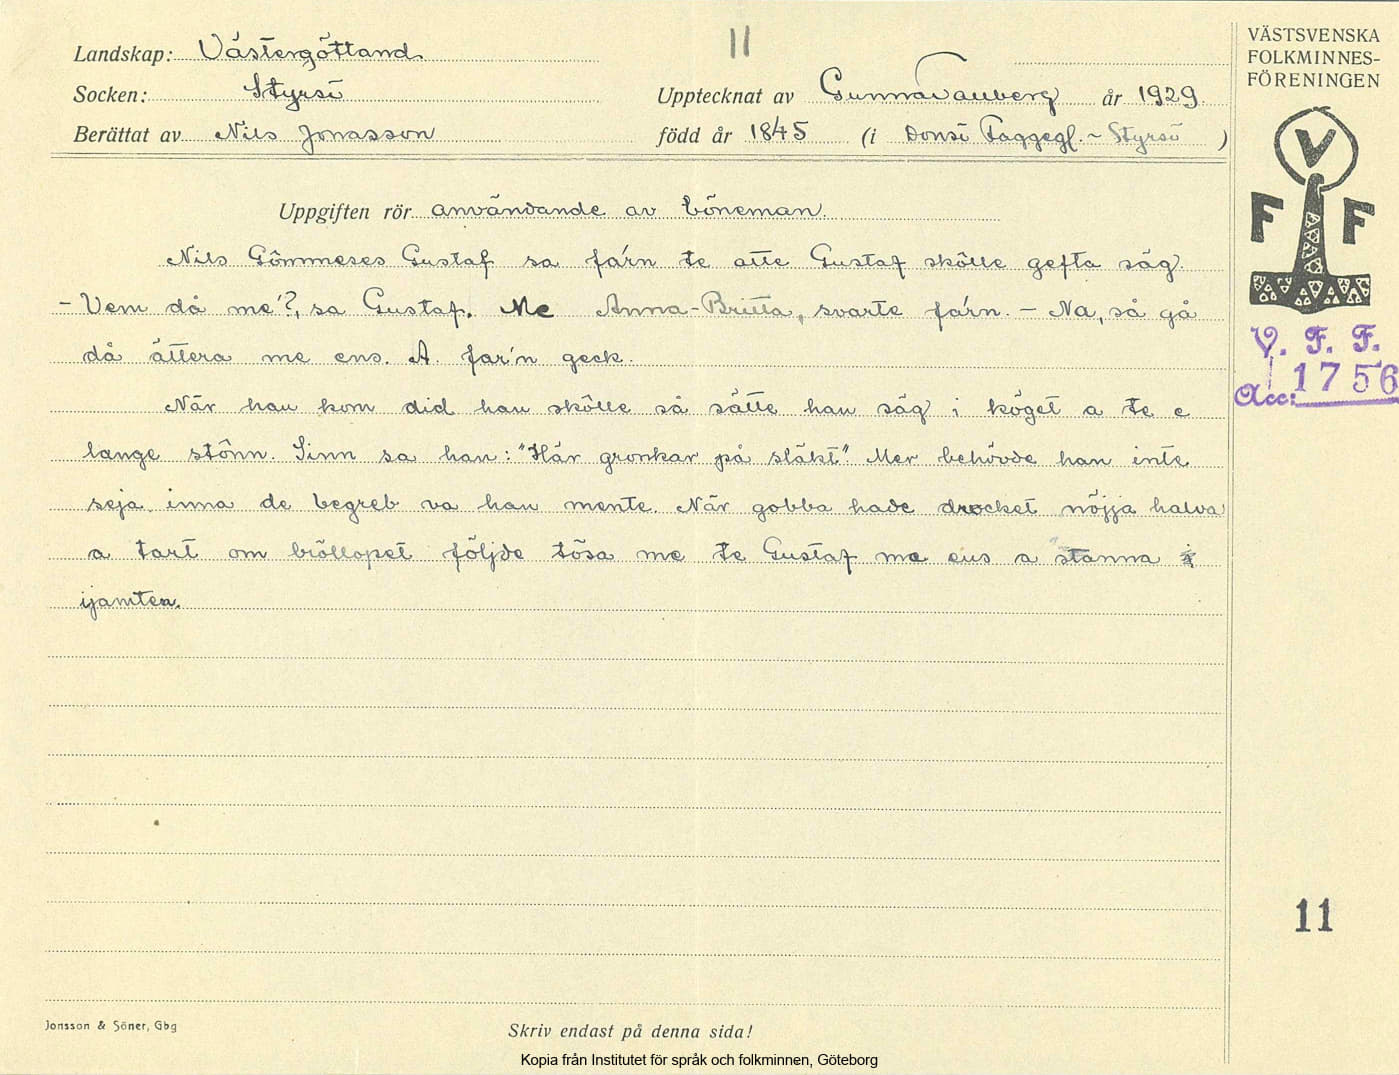 11
VÄSTSVENSKA
FOLKMINNES-
FÖRENINGEN
Landskap: Västergötland
Socken: Styrsö
Upptecknat av Gunnar Tauberg år 1929
Berättat av Nils Jonasson född år 1845 (i Donsö Faggegf. - Styrsö )
Uppgiften rör användande av böneman.
Nils Gömmeses Gustaf sa fa'rn te atte Gustaf skölle gefta säg.
- Vem då me'?, sa Gustaf. Me Anna-Britta, svarte fa'rn. - Na, så gå
då ättera me ens. A far'n geck.
När han kom did han skölle så sätte han säg i köget a te e
lange stönn. Sinn sa han: "Här gronkar på släkt". Mer behövde han inte
seja inna de begreb va han mente. När gobba hade drocket nöjja halva
a tart om bröllopet följde tösa me te Gustaf me ens a stanna i
ijamten.
V F F
V. F. F.
Acc: 1756
11
Jonsson & Söner, Gbg
Skriv endast på denna sida!
Kopia från Institutet för språk och folkminnen, Göteborg